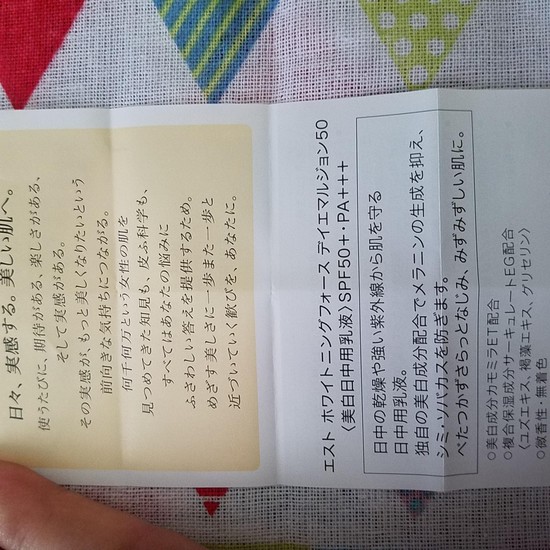 日々、実感する。美しい肌へ。
使うたびに、期待がある、楽しさがある、
そして実感がある。
その実感が、もっと美しくなりたいという
前向きな気持ちにつながる。
何千何万という女性の肌を
見つめてきた知見も、皮ふ科学も、
すべてはあなたの悩みに
ふさわしい答えを提供するため。
めざす美しさに一歩また一歩と
近づいていく歓びを、あなたに。
エスト ホワイトニングフォース デイエマルジョン50
〈美白日中用乳液〉SPF50+・PA+++
日中の乾燥や強い紫外線から肌を守る
日中用乳液。
独自の美白成分配合でメラニンの生成を抑え、
シミ・ソバカスを防ぎます。
べたつかずさらっとなじみ、みずみずしい肌に。
○美白成分カモミラET配合
○複合保湿成分サーキュレートEG配合
〈ユズエキス、褐藻エキス、グリセリン〉
○微香性・無着色